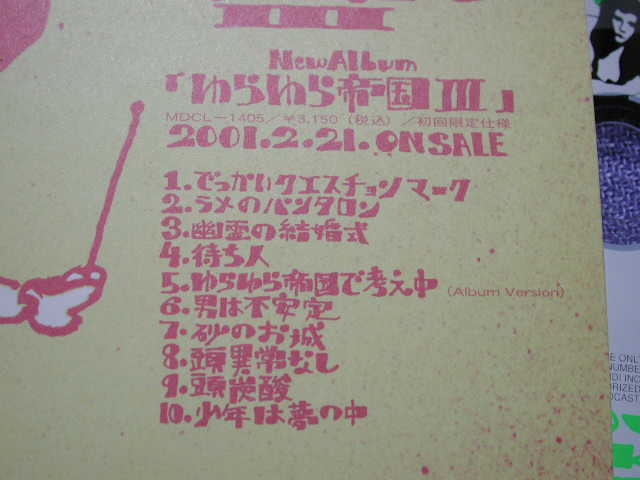 New Album
「ゆらゆら帝国III」
MDCL-1405/¥3,150（税込）/初回限定仕様
2001.2.21.ON SALE
1.でっかいクエスチョンマーク
2.ラメのパンタロン
3.幽霊の結婚式
4.待ち人
5.ゆらゆら帝国で考え中 (Album Version)
6.男は不安定
7.砂のお城
8.頭異常なし
9.頭炭酸
10.少年は夢の中
E ONL
NUMBE
DI INC
ORIZED
DCAST